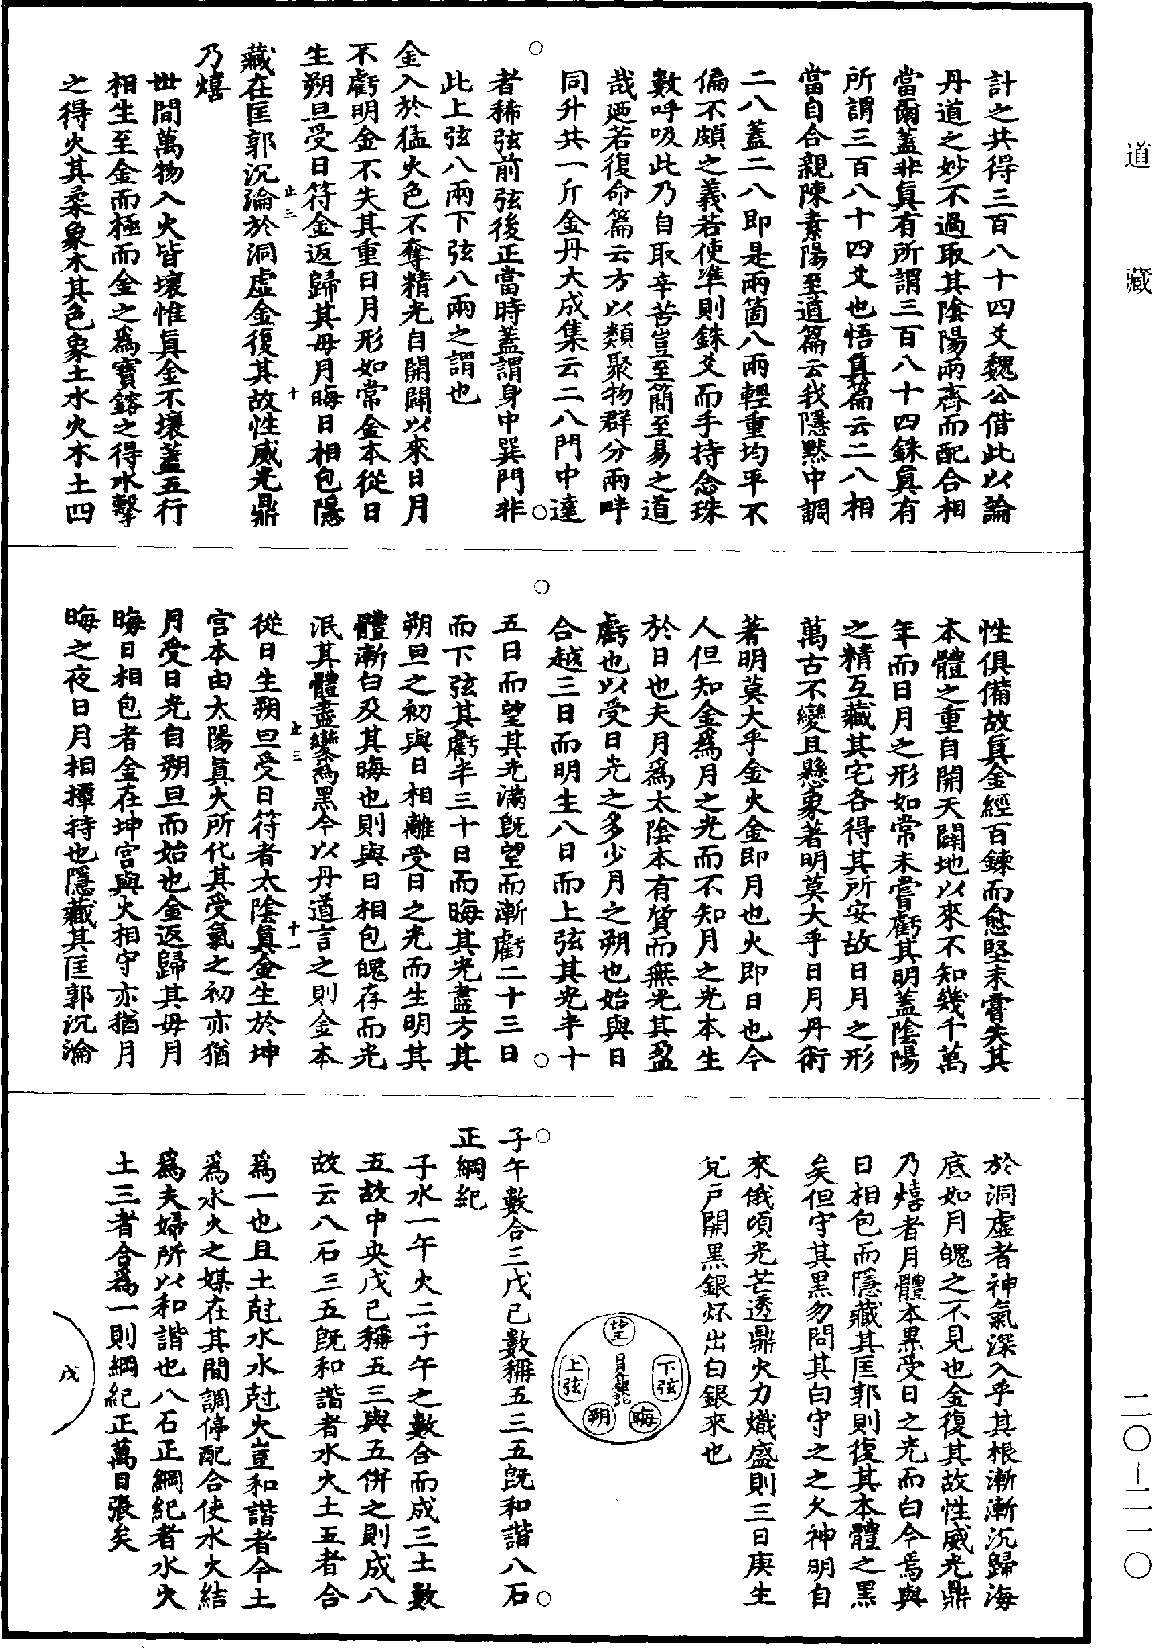 道藏
計之共得三百八十四爻魏公借此以論
丹道之妙不過取其陰陽兩齊而配合相
當爾蓋非真有所謂三百八十四銖真有
所謂三百八十四爻也悟真篇云二八相
當自合親陳素陽至道篇云我隱默中調
二八蓋二八即是兩箇八兩輕重均平不
偏不頗之義若使準則銖爻而手持念珠
數呼吸此乃自取辛苦豈至簡至易之道
哉廼若復命篇云方以類聚物群分兩畔
同升共一斤金丹大成集云二八門中達
者稀弦前弦後正當時蓋謂身中巽門非
此上弦八兩下弦八兩之謂也
金入於猛火色不奪精光自開闢以來日月
不虧明金不失其重日月形如常金本從日
生朔旦受日符金返歸其母月晦日相包隱
藏在匡郭沉淪於洞虛金復其故性威光鼎
乃熺
世間萬物入火皆壞惟真金不壞蓋五行
相生至金而極而金之為寶鎔之得水擊
之得火其柔象木其色象土水火木土四
止三
十
性俱備故真金經百鍊而愈堅未嘗失其
本體之重自開天闢地以來不知幾千萬
年而日月之形如常未嘗虧其明蓋陰陽
之精互藏其宅各得其所安故日月之形
萬古不變且懸象著明莫大乎日月丹術
著明莫大乎金火金即月也火即日也今
人但知金為月之光而不知月之光本生
於日也夫月為太陰本有質而無光其盈
虧也以受日光之多少月之朔也始與日
合越三日而明生八日而上弦其光半十
五日而望其光滿既望而漸虧二十三日
而下弦其虧半三十日而晦其光盡方其
朔旦之初與日相離受日之光而生明其
體漸白及其晦也則與日相包魄存而光
泯其體盡變為黑今以丹道言之則金本
從日生朔旦受日符者太陰真金生於坤
宮本由太陽真火所代其受氣之初亦猶
月受日光自朔旦而始也金返歸其母月
晦日相包者金在坤宮與火相守亦猶月
晦之夜日月相撢持也隱藏其匡郭沉淪
止三
十一
於洞虛者神氣深入乎其根漸漸沉歸海
底如月魄之不見也金復其故性威光鼎
乃熺者月體本黑受日之光而白今焉與
日相包而隱藏其匡郭則復其本體之黑
矣但守其黑勿問其白守之之久神明自
來俄頃光芒透鼎火力熾盛則三日庚生
兌戶開黑銀坯出白銀來也
望
下弦
晦
朔
上弦
子午數合三戊己數稱五三五既和諧八石
正綱紀
子水一午火二子午之數合而成三土數
五故中央戊己稱五三與五併之則成八
故云八石三五既和諧者水火土五者合
為一也且土尅水水尅火豈和諧者今土
為水火之媒在其間調停配合使水火結
為夫婦所以和諧也八石正綱紀者水火
土三者合為一則綱紀正萬目張矣
戊
二〇-二一〇